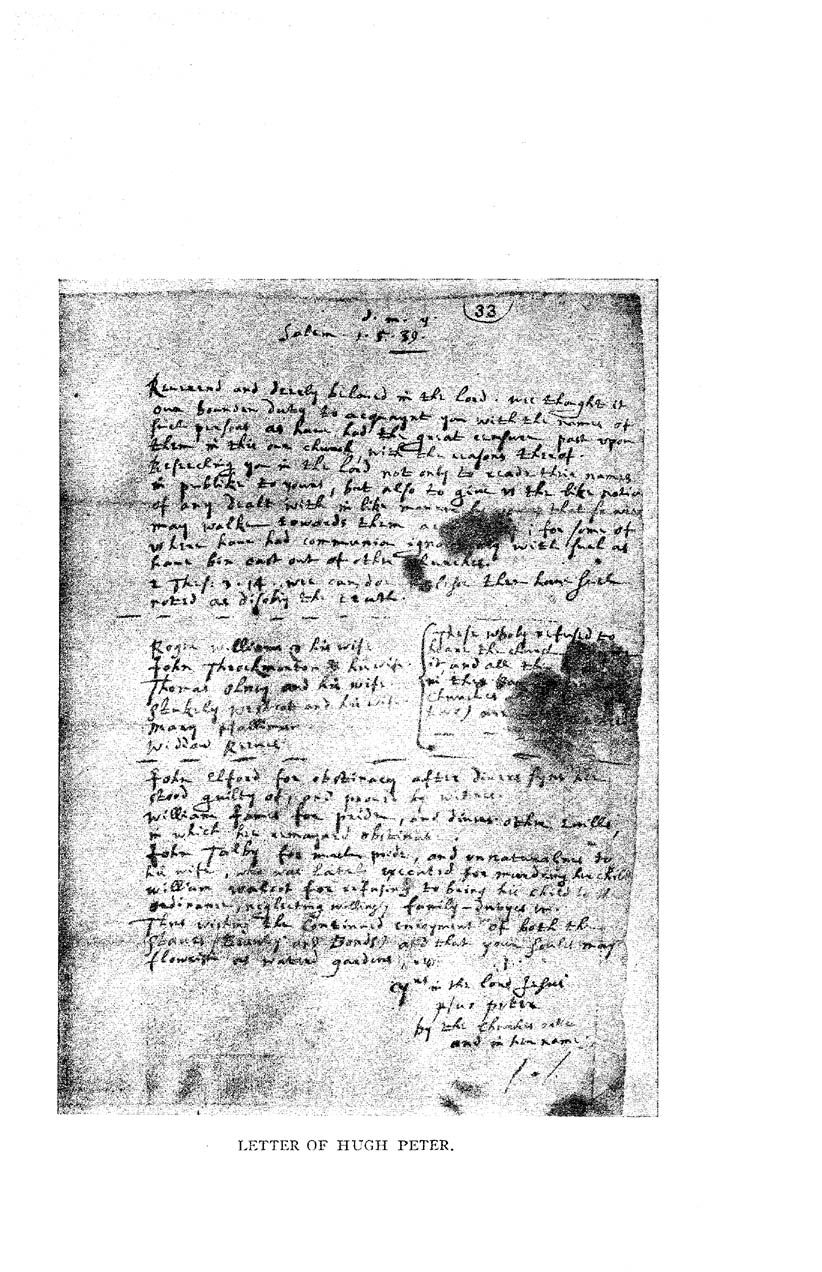 33
d. m. y.
Salem 1. 5. 39.
Reuerend and dearly beloued in the lord. wee thought it
our bounden duty to acquaynt you with the names of
such persons as haue had the great censure past vpon
them in this our church, with the reasons thereof.
Beseeching you in the lord not only to reade their names
in publike to yours, but also to giue vs the like notice
of any dealt with in like manner that so wee
may walke towards them for some of
vs here haue had communion with such as
haue bin cast out of other churches.
2 Thes. 3. 14. wee can do these haue such
noted as disobey the truth.
Roger Williams & his wife
John Throckmorton & his wife
Thomas Olney and his wife
Stukely Westcot and his wife
Mary Holliman
Widdow Reeues
These wholy refused to
heare the church
it and all the
in the Bay
Churches
two) are
John Elford for obstinacy after diuers sins hee
stood guilty of, and proued by witnes.
William James for pride, and diuers other euills,
in which hee remayned obstinate.
John Talby for much pride, and vnnaturalnes to
his wife, who was lately executed for murdring her child
William Walcot for refusing to bring his child to
ordinance, neglecting willingly family-dutyes
Thus wishing the continued enioyment of both the
staues (Beauty and Bonds) and that your soules may
flowrish as watred gardens,
yrs in the lord Jesus
Hugo Peter
by the Churches
and in her name.
LETTER OF HUGH PETER.